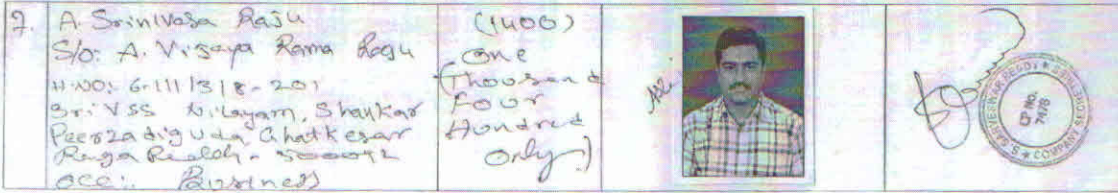 7.
A. Srinivasa Raju
S/o. A. Vijaya Rama Raju
H.NO: 6-111/3/8-201
Sri VSS Nilayam, Shankar
Peerzadiguda, Ghatkesar
Ranga Reddy - 500042
occ:. Business
(1400)
One
(Thousand
Four
Hundred
only)
S. SARVEWAR REDDY
COMPANY SECRE
CP NO.
7478